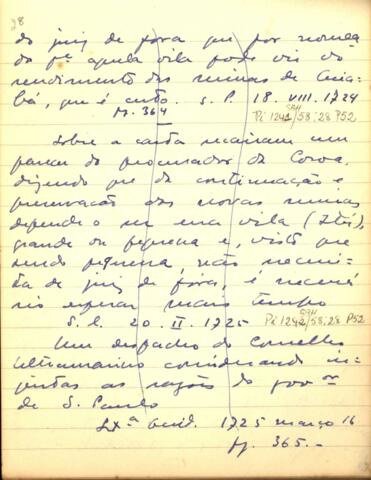 28
do juiz de fora que por nomea
do pª aquela vila pode vir do
rendimento das minas de Cuia
bá, que é curto. S. P. 18. VIII. 1724
fl. 364
SRH
Pi 1242/58:28 P52
Sobre a carta recairam um
parecer do procurador da Coroa,
dizendo que da continuação e
preservacão das novas minas
depende o ser essa vila (Itú),
grande ou pequena e, visto que
sendo pequena, não necessi
ta de juiz de fóra, é necessá
rio esperar mais tempo
S. L. 20. II. 1725
SRH
Pi 1242/58:28 P52
Um despacho do Conselho
Ultramarino considerando in
justas as razões do govor
de S. Paulo
Lxª Ocid. 1725 março 16
fl. 365.-